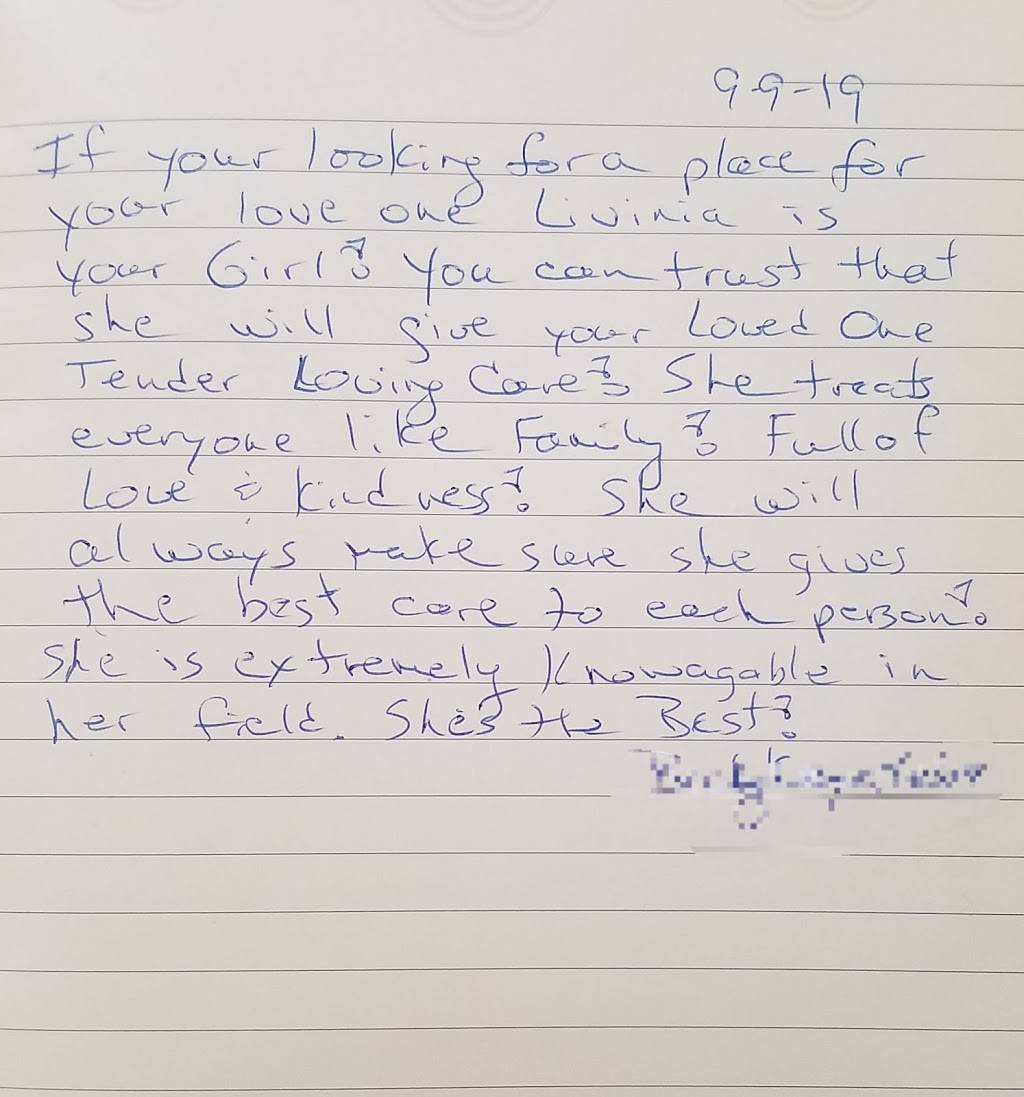 9-9-19
If your looking for a place for
your love one Livinia is
your Girl! You can trust that
she will give your Loved One
Tender Loving Care! She treats
everyone like Family! Full of
Love & Kindness! She will
always make sure she gives
the best care to each person!
She is extremely Knowagable in
her field. She's the Best!